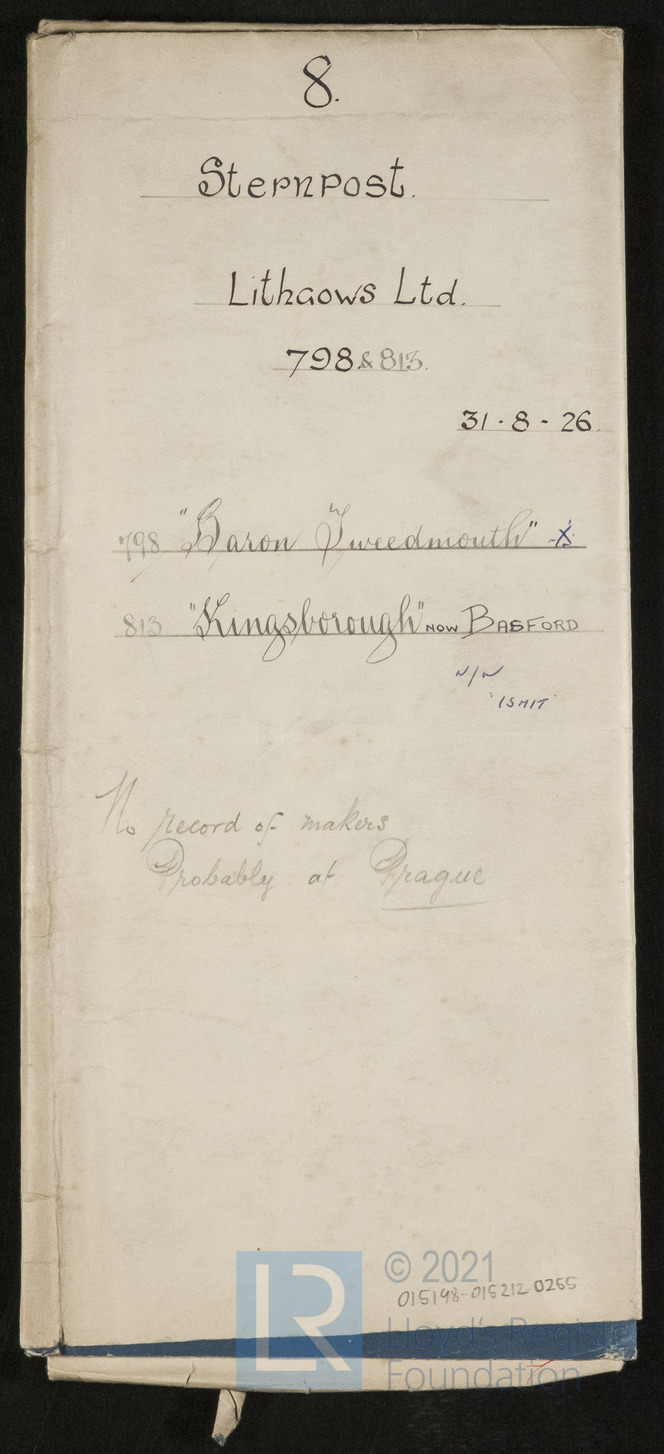 8.
Sternpost.
Lithgows Ltd.
798 & 813.
31 - 8 - 26.
798 "Baron Tweedmouth" X
813 "Kingsborough" NOW BASFORD
N/N
'ISMIT'
No record of makers
Probably at Prague
LR © 2021
015198-015212-0255
Lloyd's Register
Foundation